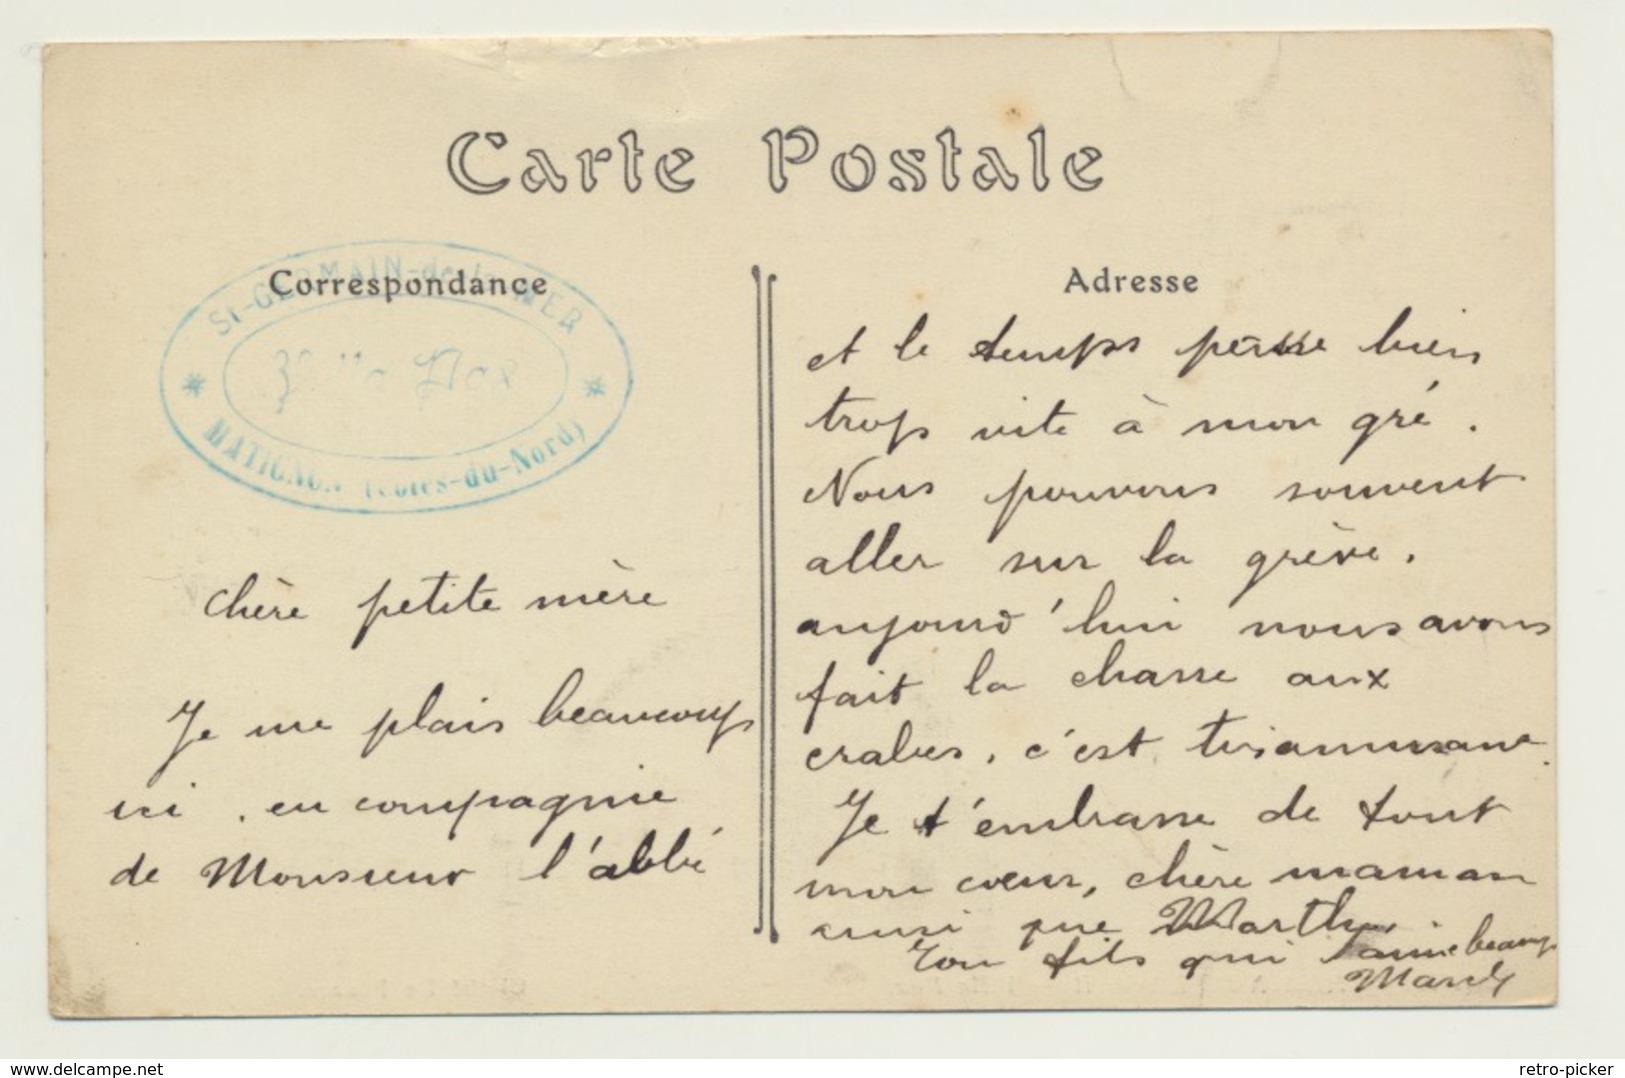 Carte Postale
Correspondance
ST-GERMAIN-de-la-MER
MATIGNON (Côtes-du-Nord)
chère petite mère
Je me plais beaucoup
ici, en compagnie
de Monsieur l'abbé
Adresse
et le temps passe bien
trop vite à mon gré.
Nous pouvons souvent
aller sur la grève.
aujourd'hui nous avons
fait la chasse aux
crabes, c'est très amusant.
Je t'embrasse de tout
mon cœur, chère maman
ainsi que Marthe
Ton fils qui t'aime beaucoup
Marcel
delcampe.net
retro-picker